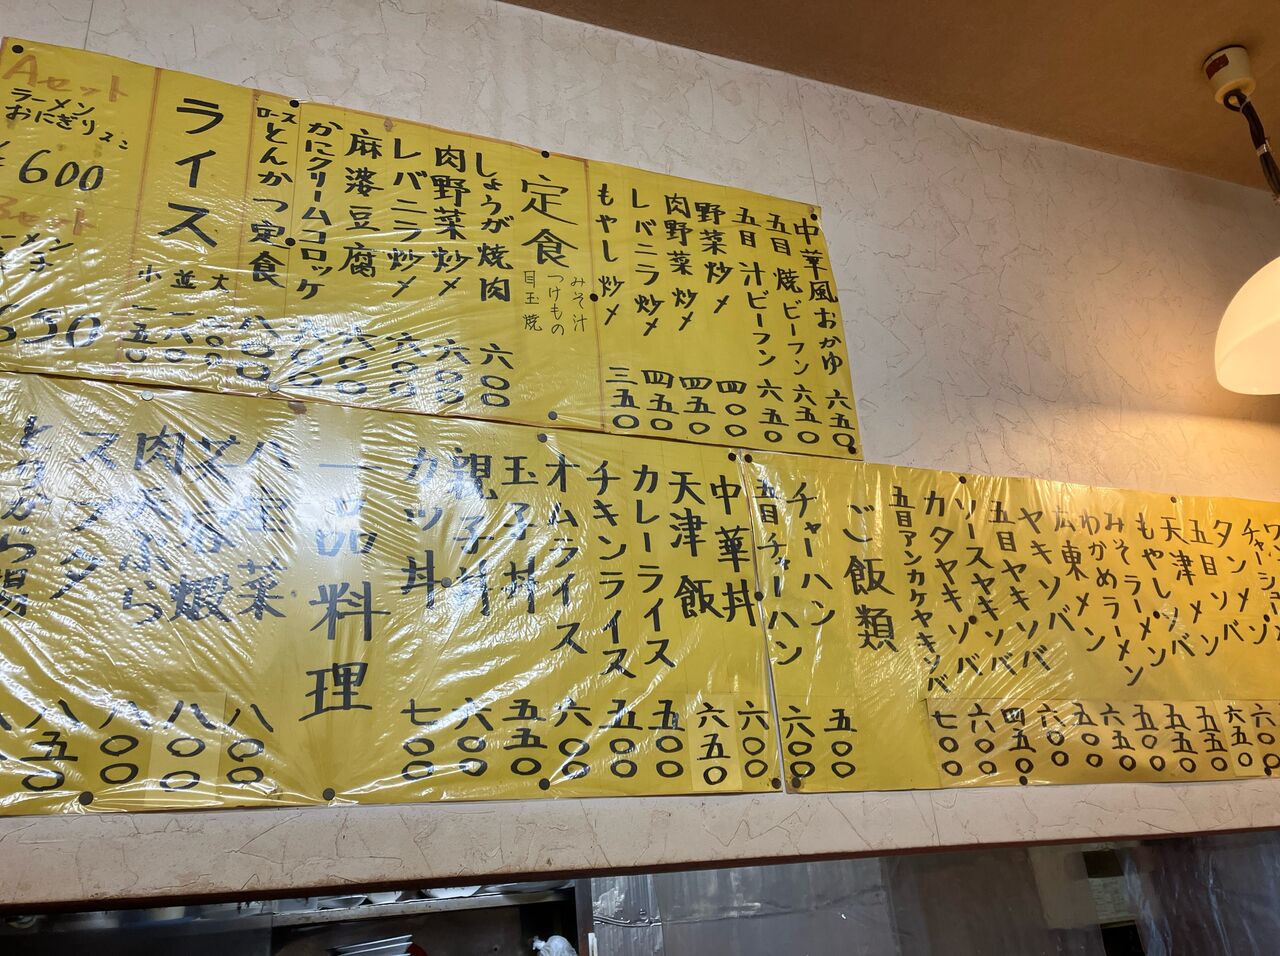 中華風おかゆ 六五〇
五目焼ビーフン 六五〇
五目汁ビーフン 六五〇
野菜炒メ 四〇〇
肉野菜炒メ 四五〇
レバニラ炒メ 四五〇
もやし炒メ 三五〇
定食
みそ汁
つけもの
目玉焼
しょうが焼肉 六〇〇
肉野菜炒メ 六〇〇
レバニラ炒メ 六〇〇
麻婆豆腐 六〇〇
かにクリームコロッケ
ロースとんかつ定食 八〇〇
ライス
大 二〇〇
並 一六〇
小 一五〇
Aセット
ラーメン
おにぎり
600
Bセット
650
タンメン
五目ソバ 五五〇
天津メン 五五〇
もやしソバ 五五〇
みそラーメン 五五〇
わかめラーメン 六五〇
広東メン 五五〇
ヤキソバ
五目ヤキソバ 六〇〇
ソースヤキソバ 四五〇
カタヤキソバ 六〇〇
五目アンカケヤキソバ 七〇〇
ご飯類
チャーハン 五〇〇
五目チャーハン 六〇〇
中華丼 六〇〇
天津飯 六五〇
カレーライス 五五〇
チキンライス 五五〇
オムライス 六〇〇
玉子丼 五五〇
親子丼 六〇〇
カツ丼 七〇〇
一品料理
八宝菜 八〇〇
芝海蝦 八〇〇
肉天ぷら 八〇〇
スブタ 八五〇
とりから揚